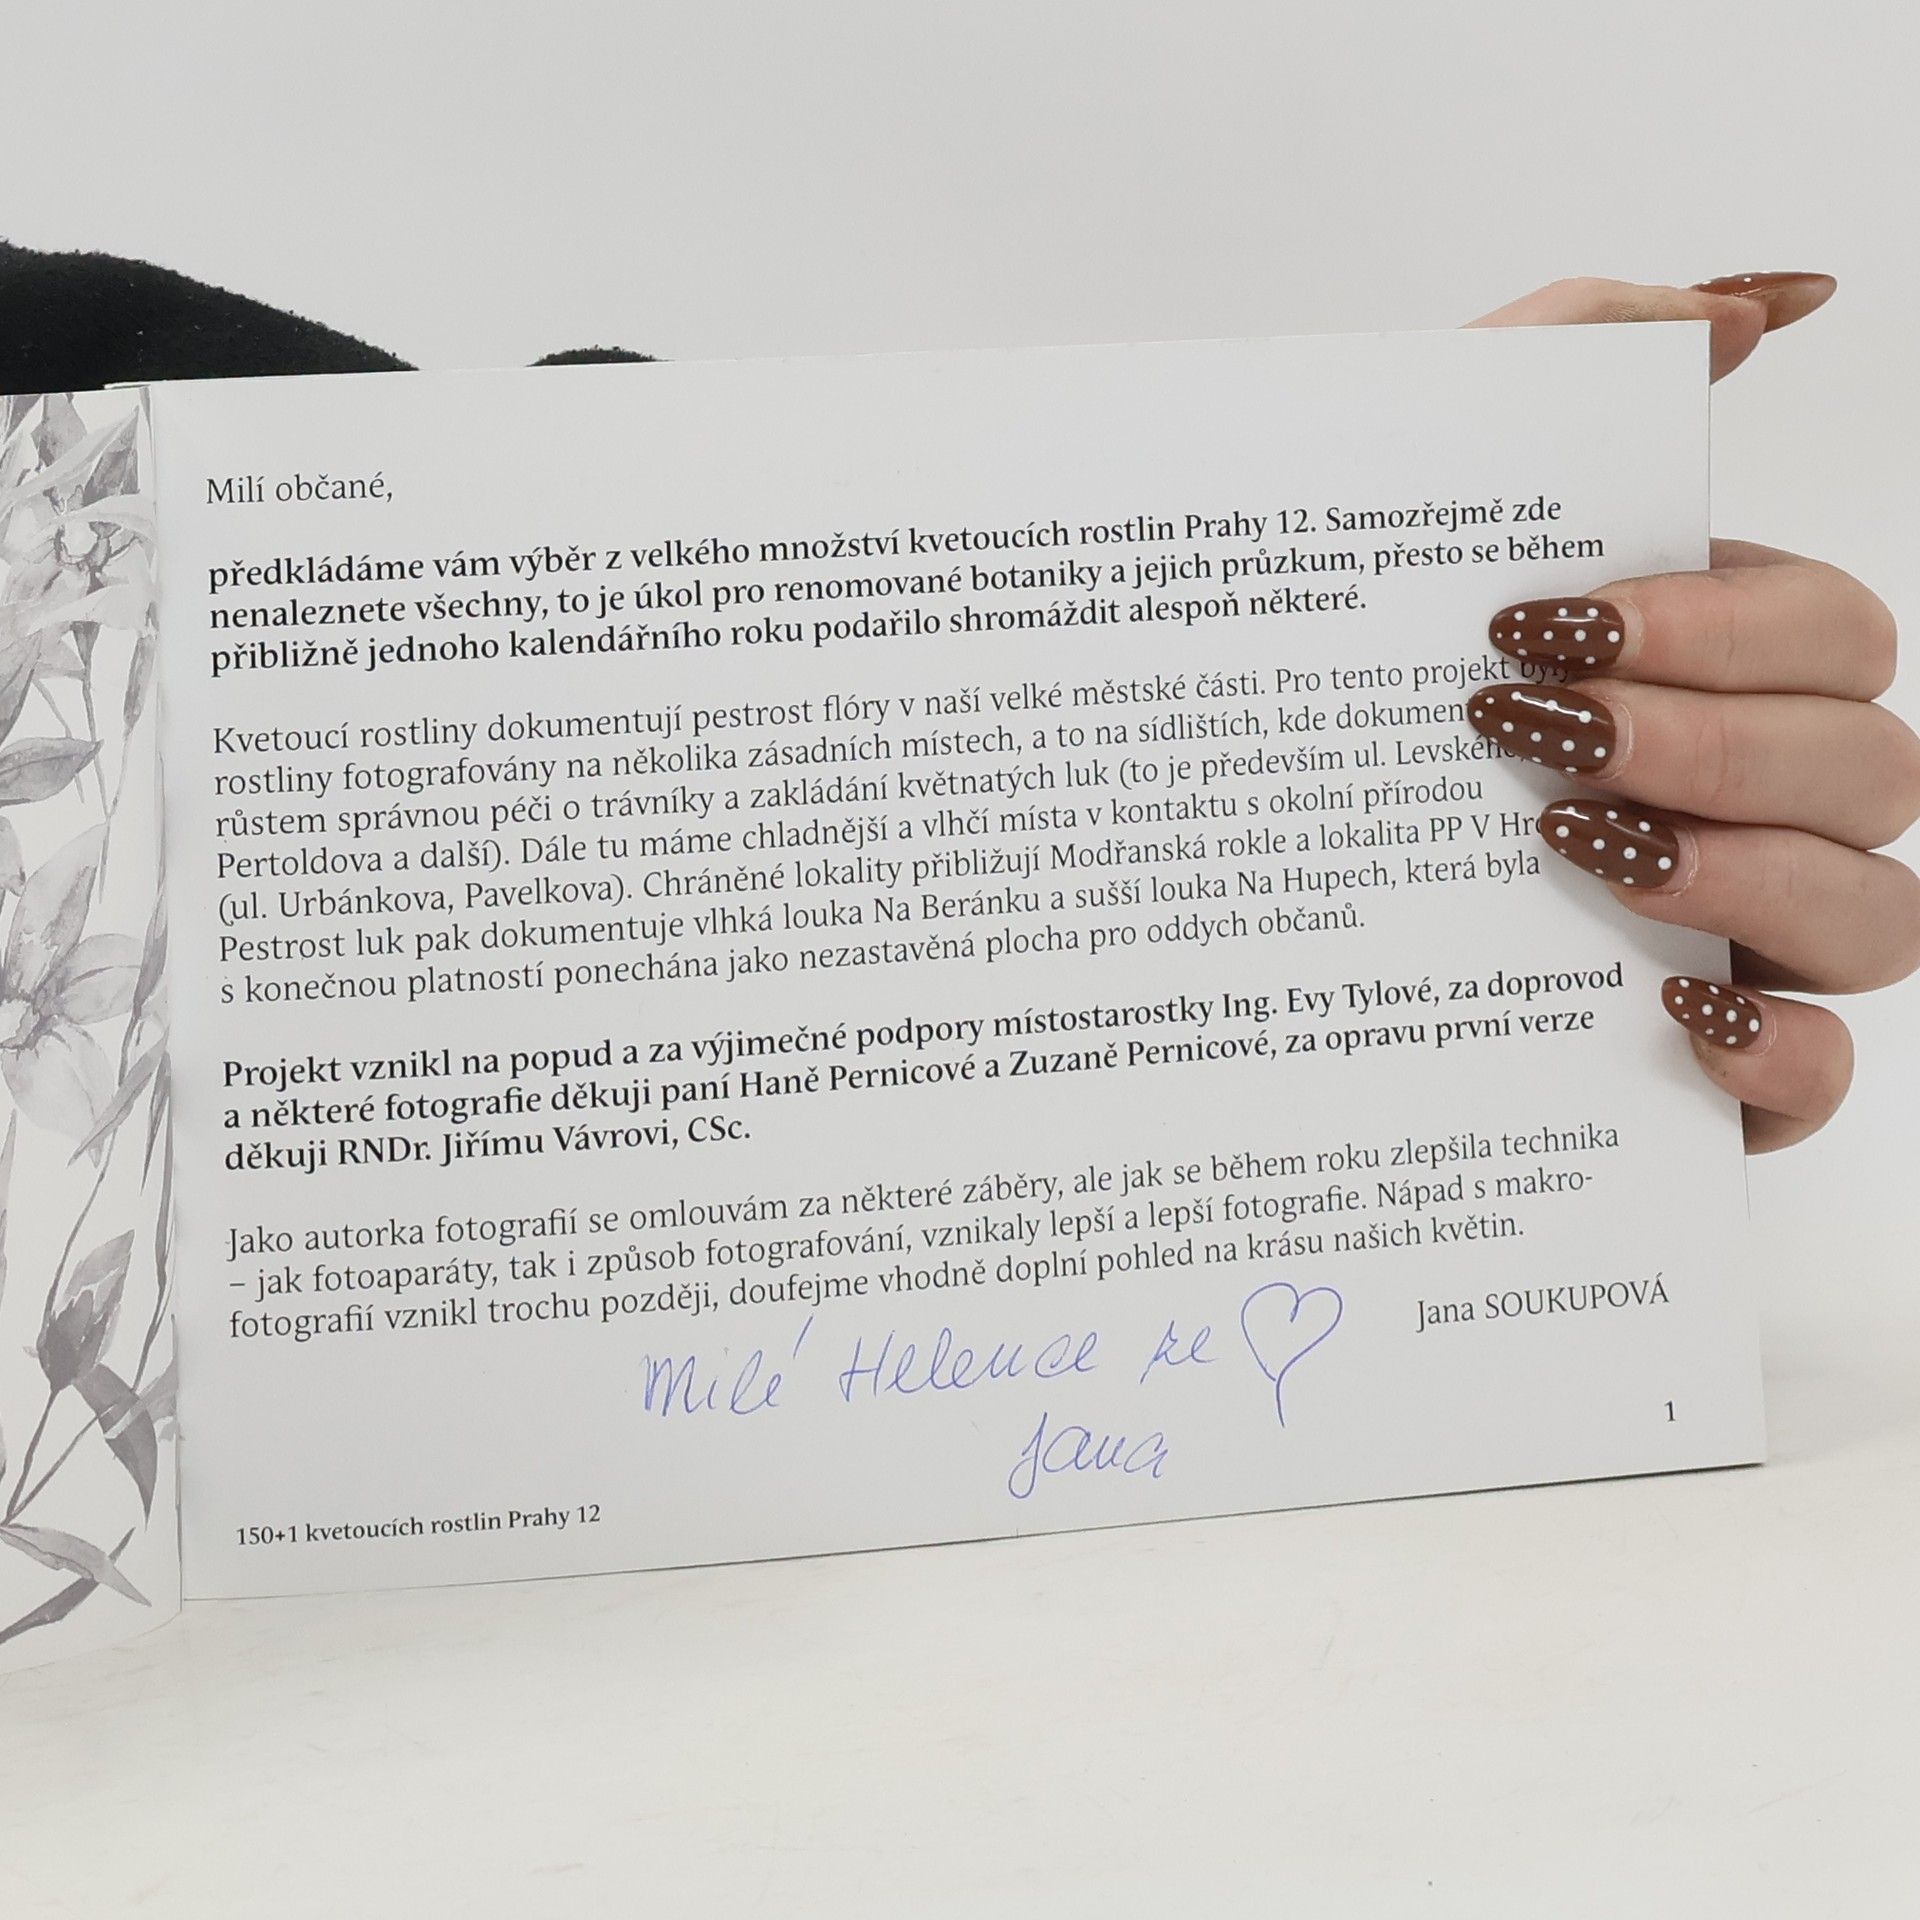 Milí občané,
předkládáme vám výběr z velkého množství kvetoucích rostlin Prahy 12. Samozřejmě zde
nenaleznete všechny, to je úkol pro renomované botaniky a jejich průzkum, přesto se během
přibližně jednoho kalendářního roku podařilo shromáždit alespoň některé.
Kvetoucí rostliny dokumentují pestrost flóry v naší velké městské části. Pro tento projekt byly
rostliny fotografovány na několika zásadních místech, a to na sídlištích, kde
růstem správnou péči o trávníky a zakládání květnatých luk (to je především ul.
Pertoldova a další). Dále tu máme chladnější a vlhčí místa v kontaktu s okolní přírodou
(ul. Urbánkova, Pavelkova). Chráněné lokality přibližují Modřanská rokle a lokalita PP V
Pestrost luk pak dokumentuje vlhká louka Na Beránku a sušší louka Na Hupech, která byla
s konečnou platností ponechána jako nezastavěná plocha pro oddych občanů.
Projekt vznikl na popud a za výjimečné podpory místostarostky Ing. Evy Tylové, za doprovod
a některé fotografie děkuji paní Haně Pernicové a Zuzaně Pernicové, za opravu první verze
děkuji RNDr. Jiřímu Vávrovi, CSc.
Jako autorka fotografií se omlouvám za některé záběry, ale jak se během roku zlepšila technika
– jak fotoaparáty, tak i způsob fotografování, vznikaly lepší a lepší fotografie. Nápad s makro-
fotografií vznikl trochu později, doufejme vhodně doplní pohled na krásu našich květin.
Jana SOUKUPOVÁ
Milé Helence ze
Jana
1
150+1 kvetoucích rostlin Prahy 12